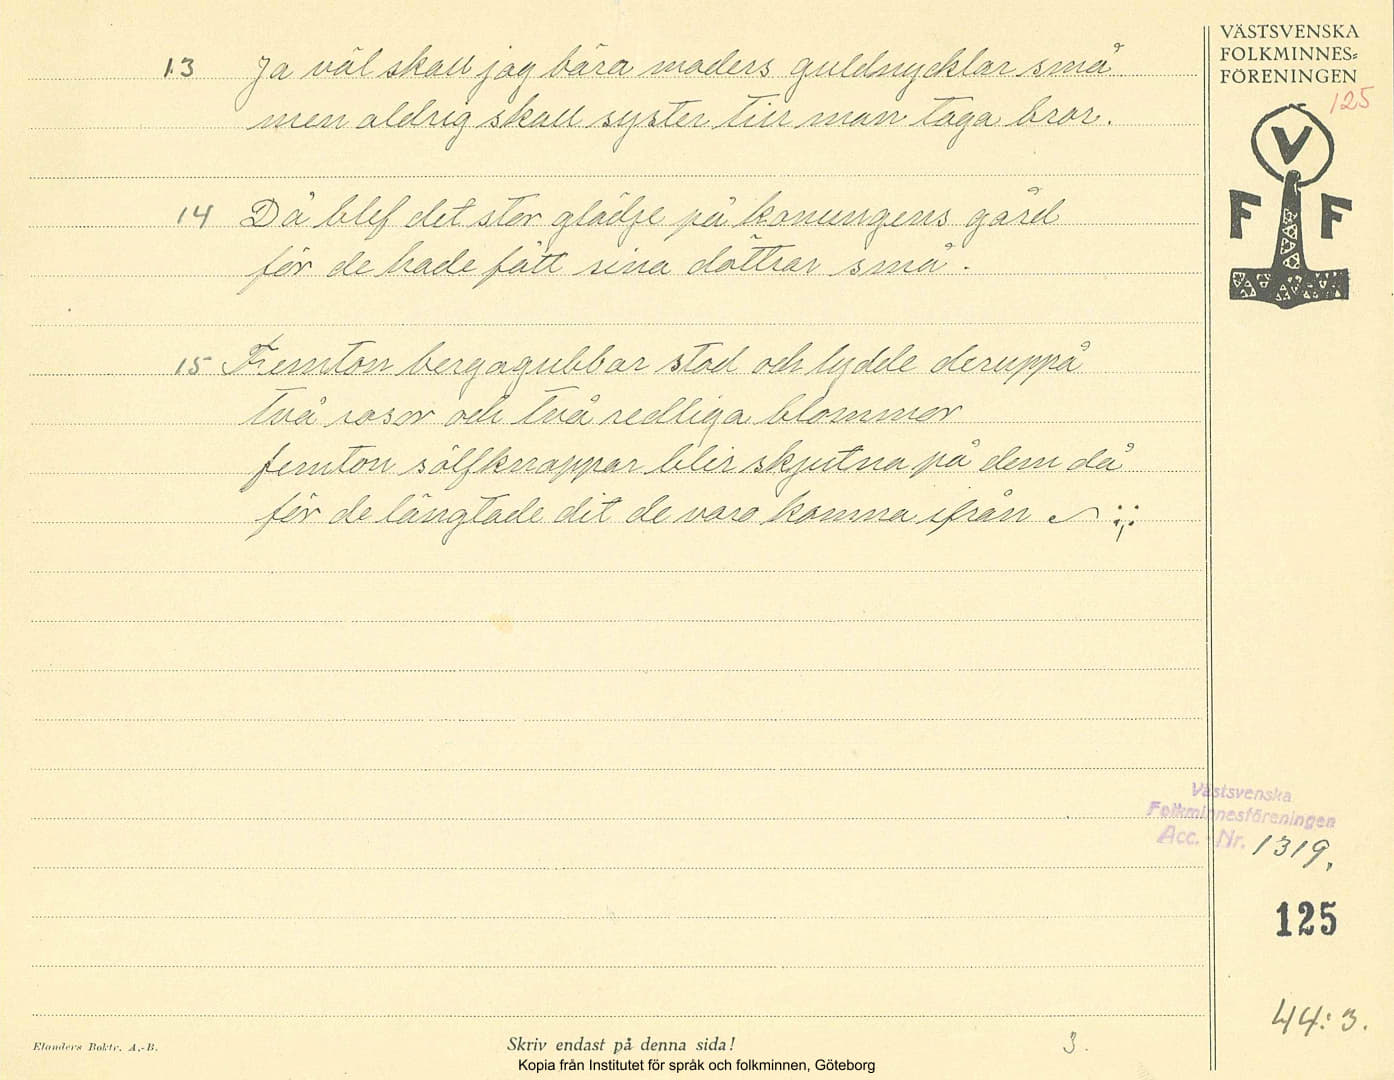 VÄSTSVENSKA
FOLKMINNES=
FÖRENINGEN
125
V
F F
13 Ja väl skall jag bära moders guldnycklar små
men aldrig skall syster till man taga bror.
14 Då blef det stor glädje på konungens gård
för de hade fått sina döttrar små.
15 Femton bergagubbar stod och lydde deruppå
två rosor och två redliga blommor
femton sölfknappar blir skjutna på dem då
för de längtade dit de voro komna ifrån
Västsvenska
Folkminnesföreningen
Acc. Nr. 1319.
125
44:3.
3.
Elanders Boktr. A.-B.
Skriv endast på denna sida!
Kopia från Institutet för språk och folkminnen, Göteborg